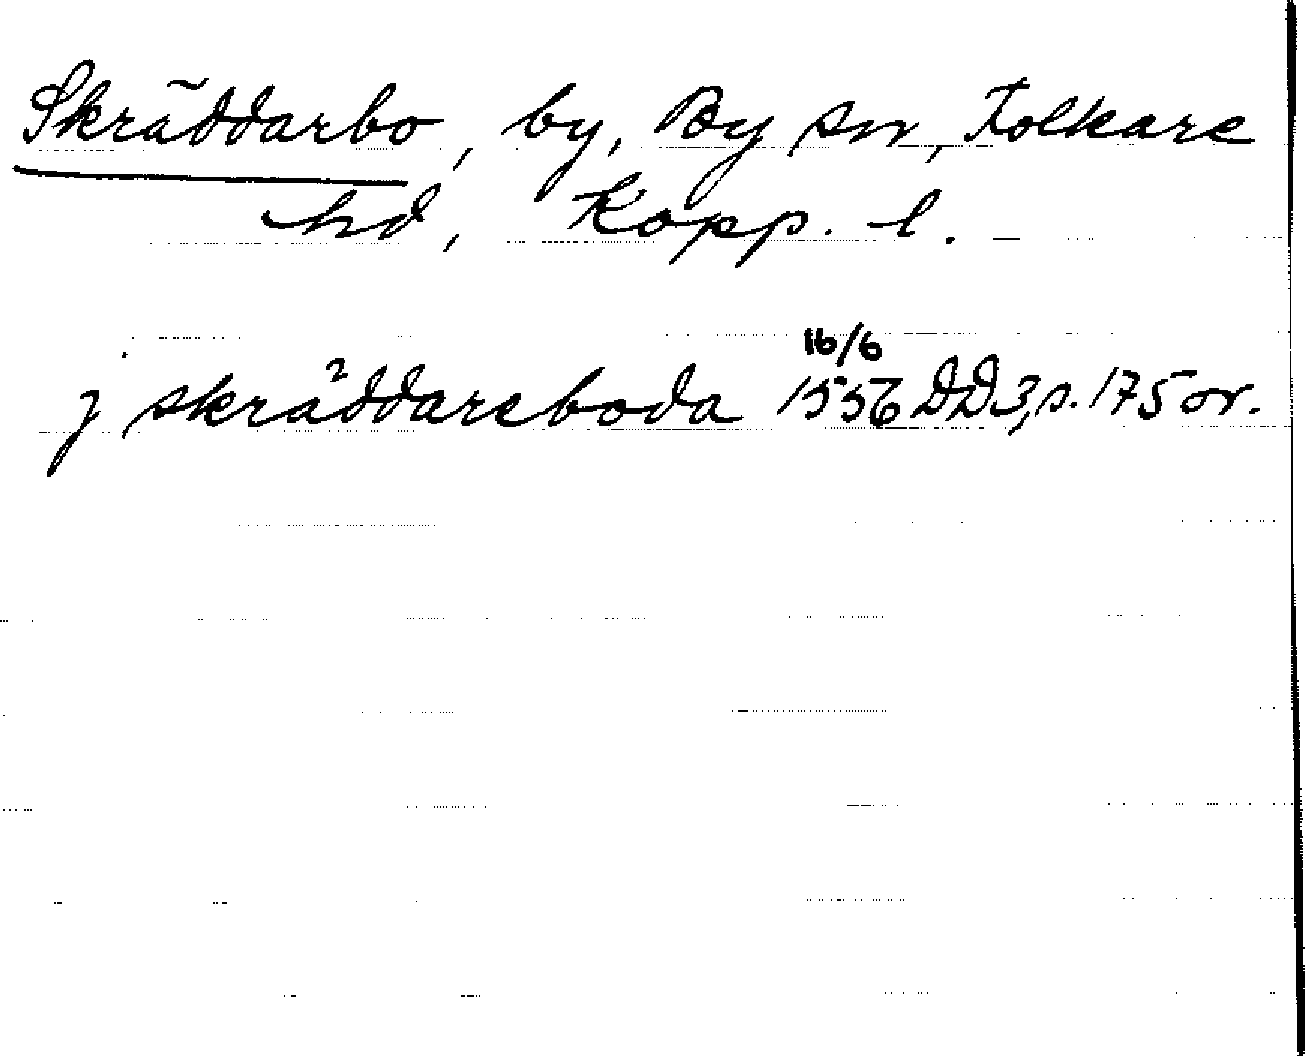 Skräddarbo, by, By sn, Folkare
hd, Kopp. l.
j skräddareboda 16/6 1556 DD 3, s. 175 or.